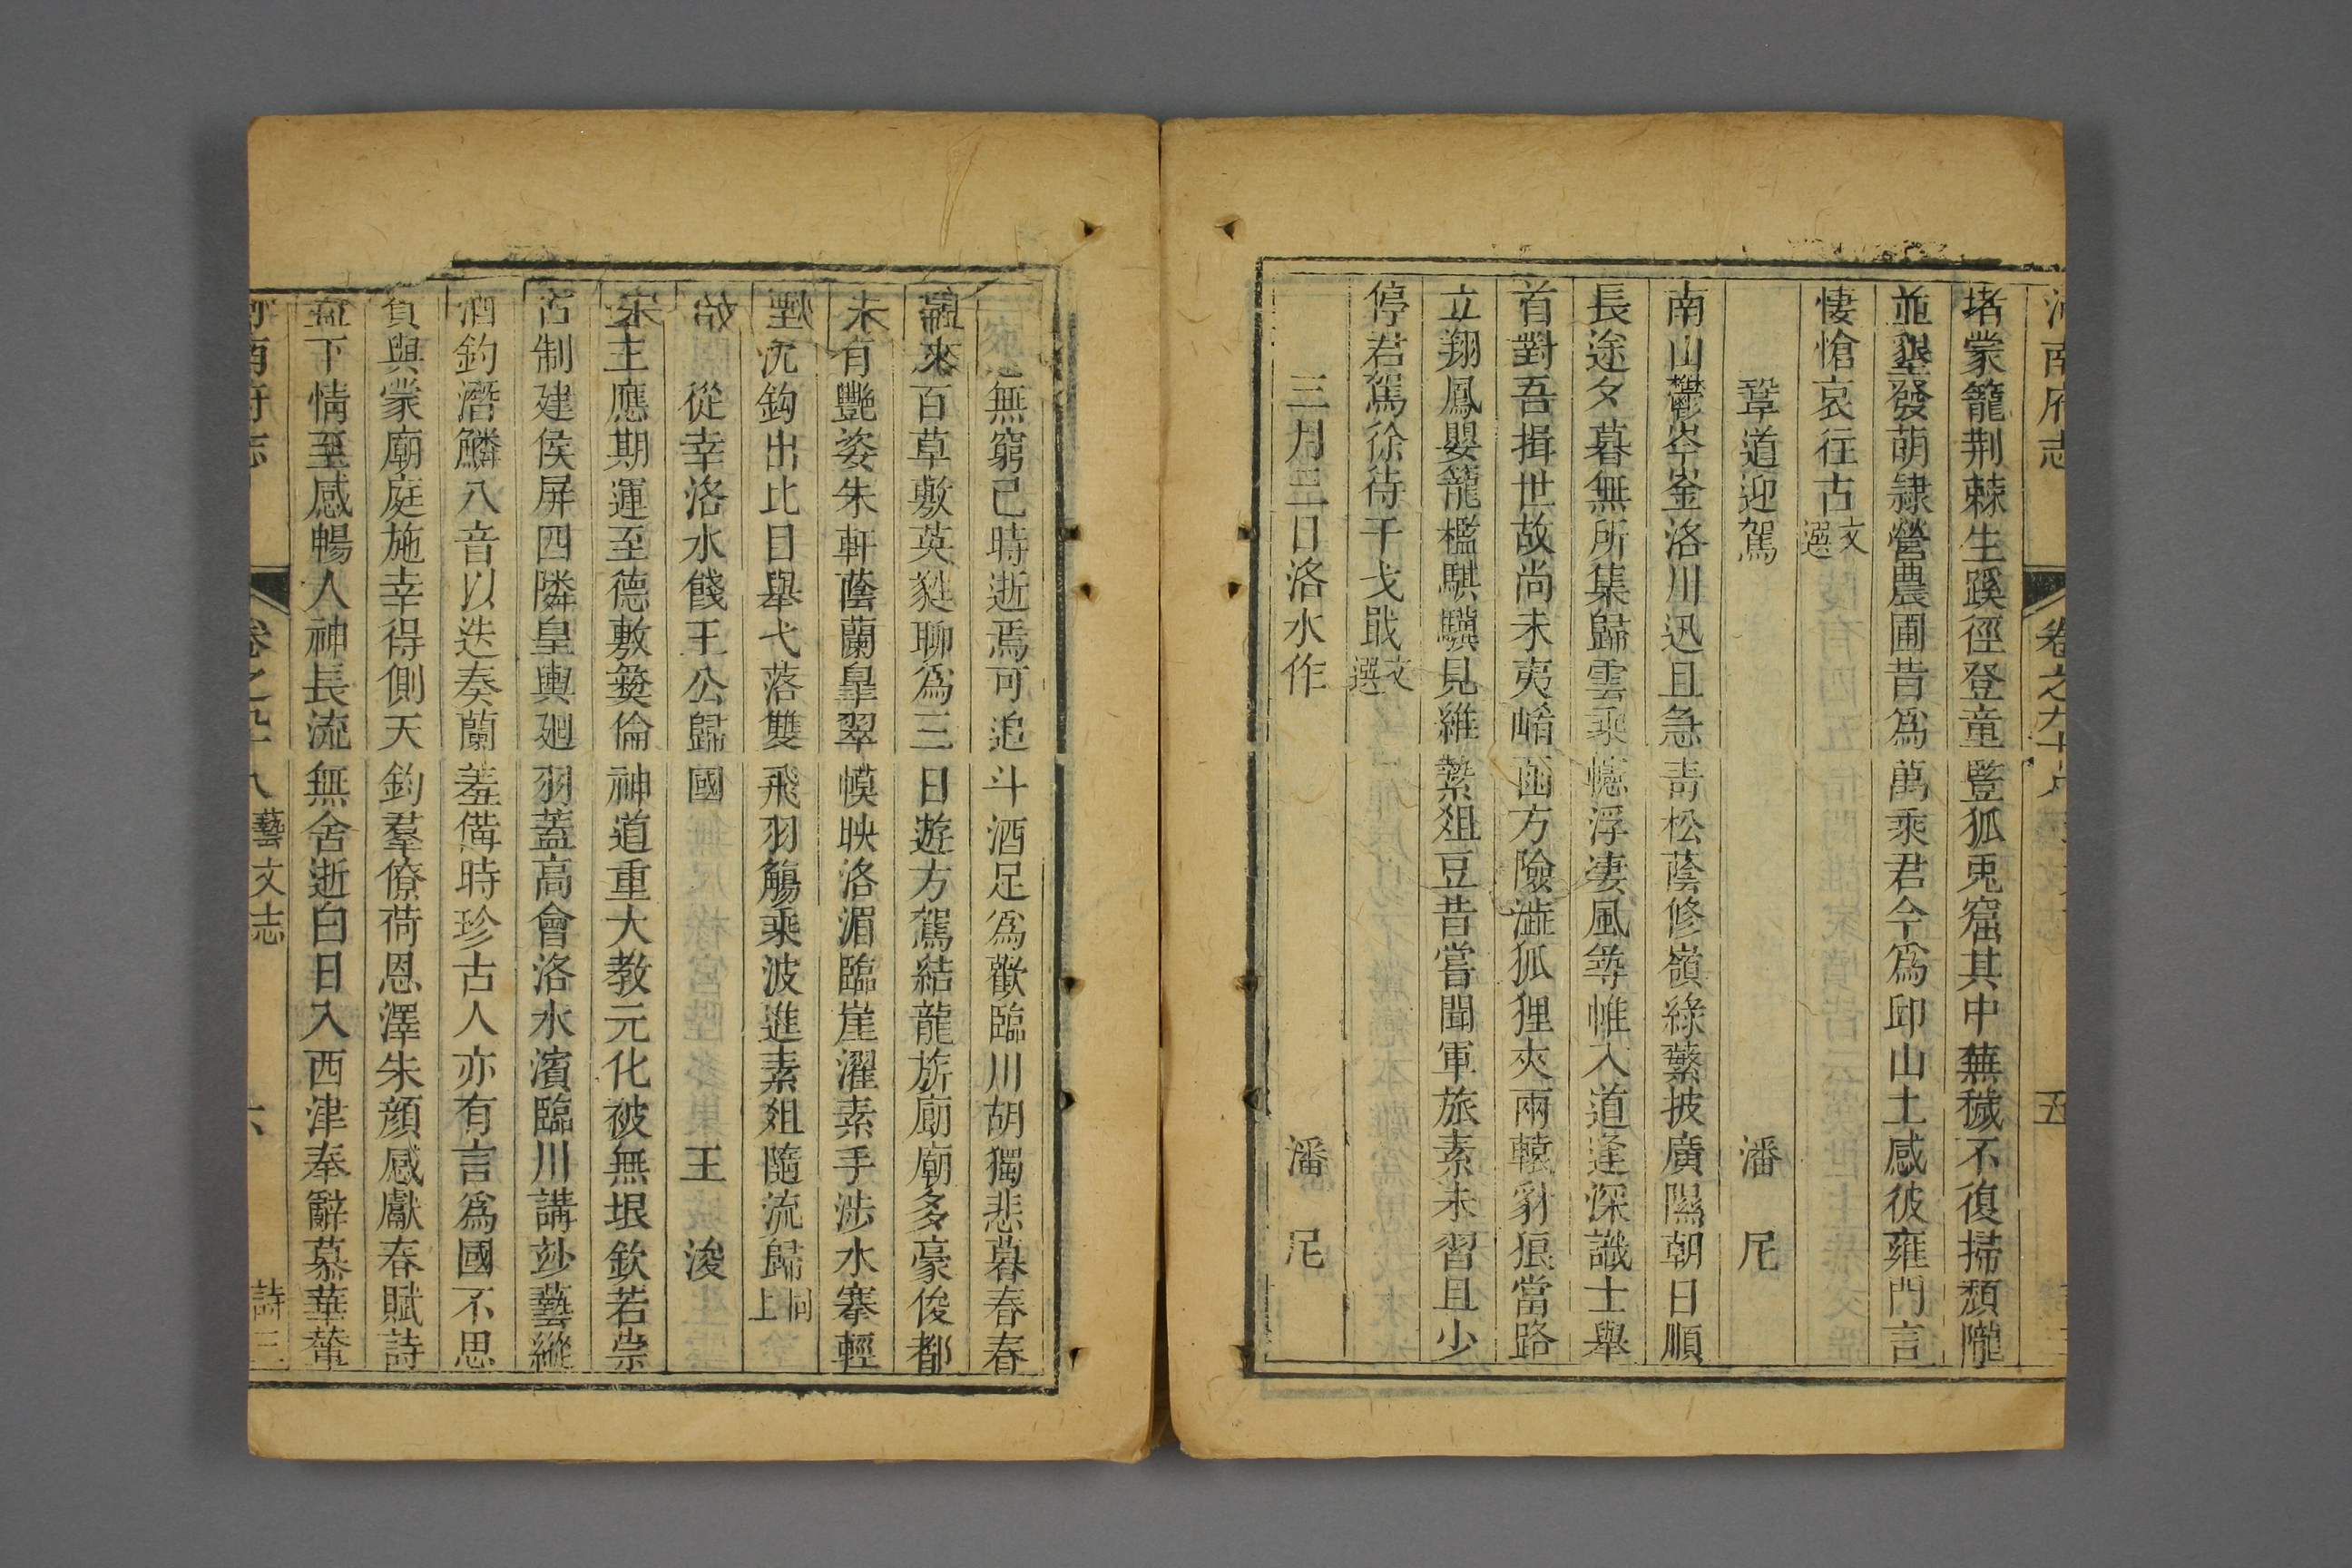 河南府志 卷之九十八 五
堵蒙籠荆棘生蹊徑登童豎狐兎窟其中蕪穢不復掃頹隴
並墾發萌隸營農圃昔爲萬乘君今爲邱山土感彼雍門言
悽愴哀往古文選
鞏道迎駕 潘尼
南山鬱岑崟洛川迅且急青松蔭修嶺綠蘩披廣隰朝日順
長途夕暮無所集歸雲乘幰浮凄風尋帷入道逢深識士舉
首對吾揖世故尚未夷崤函方險澁狐狸夾兩轅豺狼當路
立翔鳳嬰籠檻騏驥見維縶爼豆昔嘗聞軍旅素未習且少
停君駕徐待干戈戢文選
三月三日洛水作 潘尼
無窮已時逝焉可追斗酒足爲歡臨川胡獨悲暮春春
來百草敷英蕤聊爲三日遊方駕結龍旂廟廟多豪俊都
有豔姿朱軒蔭蘭皐翠幙映洛湄臨崖濯素手涉水搴輕
沉鈎出比目舉弋落雙飛羽觴乘波進素爼隨流歸同上
從幸洛水餞王公歸國 王浚
主應期運至德敷彝倫神道重大教元化被無垠欽若崇
古制建侯屏四隣皇輿廻羽蓋高會洛水濱臨川講玅藝縱
酒釣潛鱗八音以迭奏蘭羞備時珍古人亦有言爲國不思
貧與蒙廟庭施幸得側天鈞羣僚荷恩澤朱顔感獻春賦詩
盡下情至感暢人神長流無舍逝白日入西津奉辭慕華輦
河南府志 卷之九十八 藝文志 六 詩三